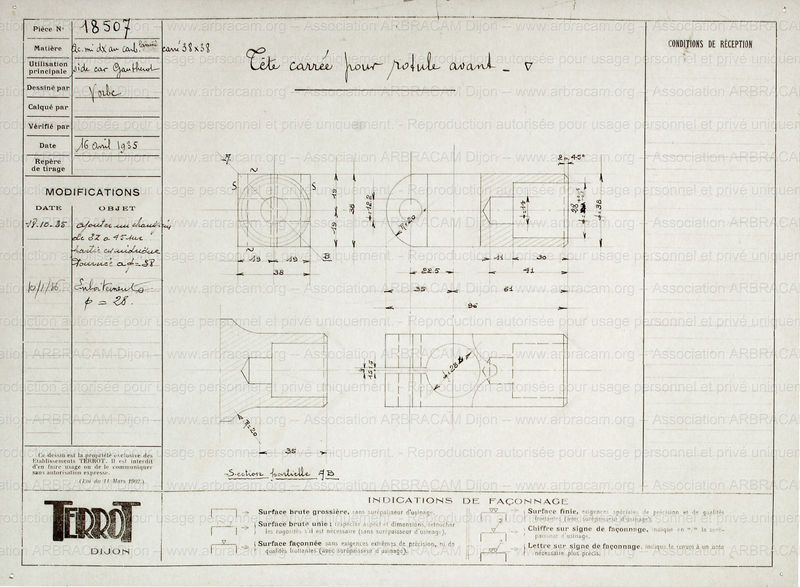 Pièce N° 18507
Matière Ac. mi dx au carb. carré 38x38
Utilisation principale side car Gauthier
Dessiné par
Calqué par
Vérifié par
Date 16 avril 1935
Repère de tirage
Tête carrée pour rotule avant - ▽
CONDITIONS DE RÉCEPTION
MODIFICATIONS
DATE OBJET
18.10.35 ajouter un chanfrein
de 32 à 45 sur
partie cylindrique
tournée à ϕ = 38
10/1/36 Emboitement
ϕ = 28.
S
S
19
19
38
19
19
38
B
ϕ=12.2
R=20
2 à 45°
ϕ=14
28
ϕ=38
11
30
22.5
41
35
61
96
R=20
35
Section partielle AB
ϕ=28.5
3
15.5
Ce dessin est la propriété exclusive des
Etablissements TERROT. Il est interdit
d'en faire usage ou de le communiquer
sans autorisation expresse.
(Loi du 11 Mars 1902.)
TERROT
DIJON
INDICATIONS DE FAÇONNAGE
Surface brute grossière, sans surépaisseur d'usinage.
Surface brute unie : respecter aspect et dimensions, retoucher
les rugosités s'il est nécessaire (sans surépaisseur d'usinage).
Surface façonnée sans exigences extrêmes de précision, ni de
qualités frottantes (avec surépaisseur d'usinage).
Surface finie, exigences spéciales de précision et de qualités
frottantes (avec surépaisseur d'usinage).
Chiffre sur signe de façonnage, indique en °/° la surépaisseur d'usinage.
Lettre sur signe de façonnage, indique le renvoi à une note
nécessaire plus précise.
www.arbracam.org -- Association ARBRACAM Dijon -- Reproduction autorisée pour usage personnel et privé uniquement.